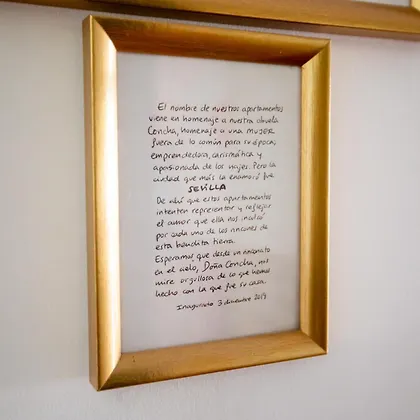 El nombre de nuestros apartamentos
viene en homenaje a nuestra abuela
Concha, homenaje a una MUJER
fuera de lo común para su época;
emprendedora, carismática y
apasionada de los viajes. Pero la
ciudad que más la enamoró fue
SEVILLA
De ahí que estos apartamentos
intenten representar y reflejar
el amor que ella nos inculcó
por cada uno de los rincones de
esta bendita tierra.
Esperamos que desde un rinconcito
en el cielo, Doña Concha, nos
mire orgullosa de lo que hemos
hecho con la que fue su casa.
Inaugurado 3 diciembre 2018